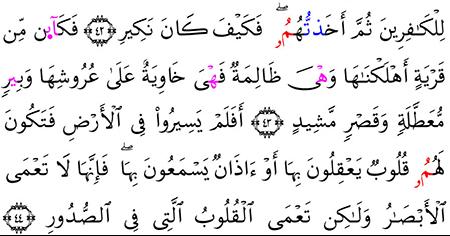 لِلْكَـٰفِرِينَ ثُمَّ أَخَذتُّهُمُۥ ۖ فَكَيْفَ كَانَ نَكِيرِ ٤٢ فَكَآىِٕن مِّن
قَرْيَةٍ أَهْلَكْنَـٰهَا وَهْىَ ظَالِمَةٌ فَهْىَ خَاوِيَةٌ عَلَىٰ عُرُوشِهَا وَبِيرٍ
مُّعَطَّلَةٍ وَقَصْرٍ مَّشِيدٍ ٤٣ أَفَلَمْ يَسِيرُوا۟ فِى ٱلْأَرْضِ فَتَكُونَ
لَهُمُۥ قُلُوبٌ يَعْقِلُونَ بِهَا أَوْ ءَاذَانٌ يَسْمَعُونَ بِهَا ۖ فَإِنَّهَا لَا تَعْمَى
ٱلْأَبْصَـٰرُ وَلَـٰكِن تَعْمَى ٱلْقُلُوبُ ٱلَّتِى فِى ٱلصُّدُورِ ٤٤